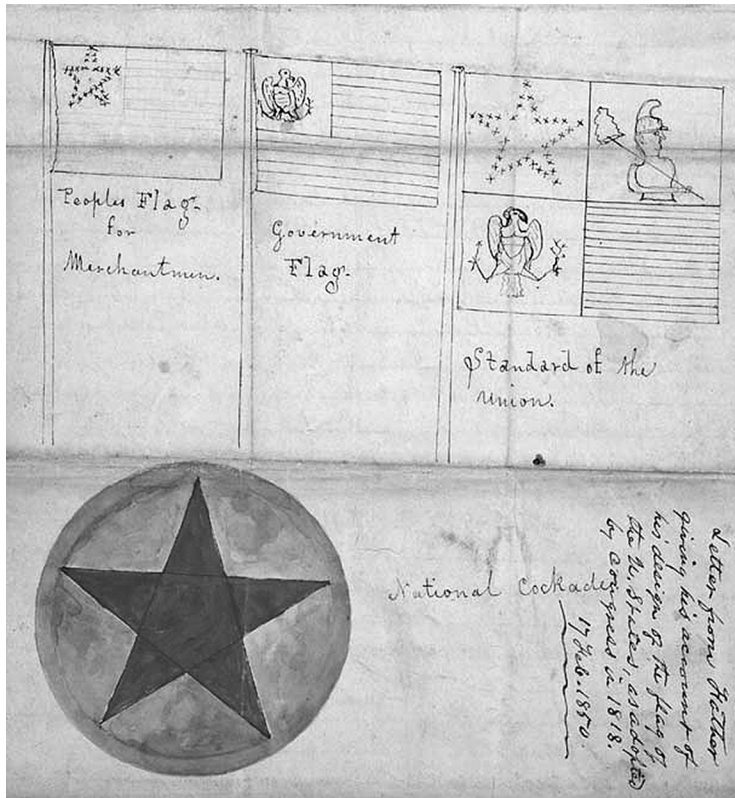 Peoples Flag.
for
Merchantmen.
Government
Flag.
Standard of the
Union.
National Cockade
Letter from Father
giving his account of
his design of the flag of
the U. States, as adopted
by Congress in 1818.
17 Feb. 1850.